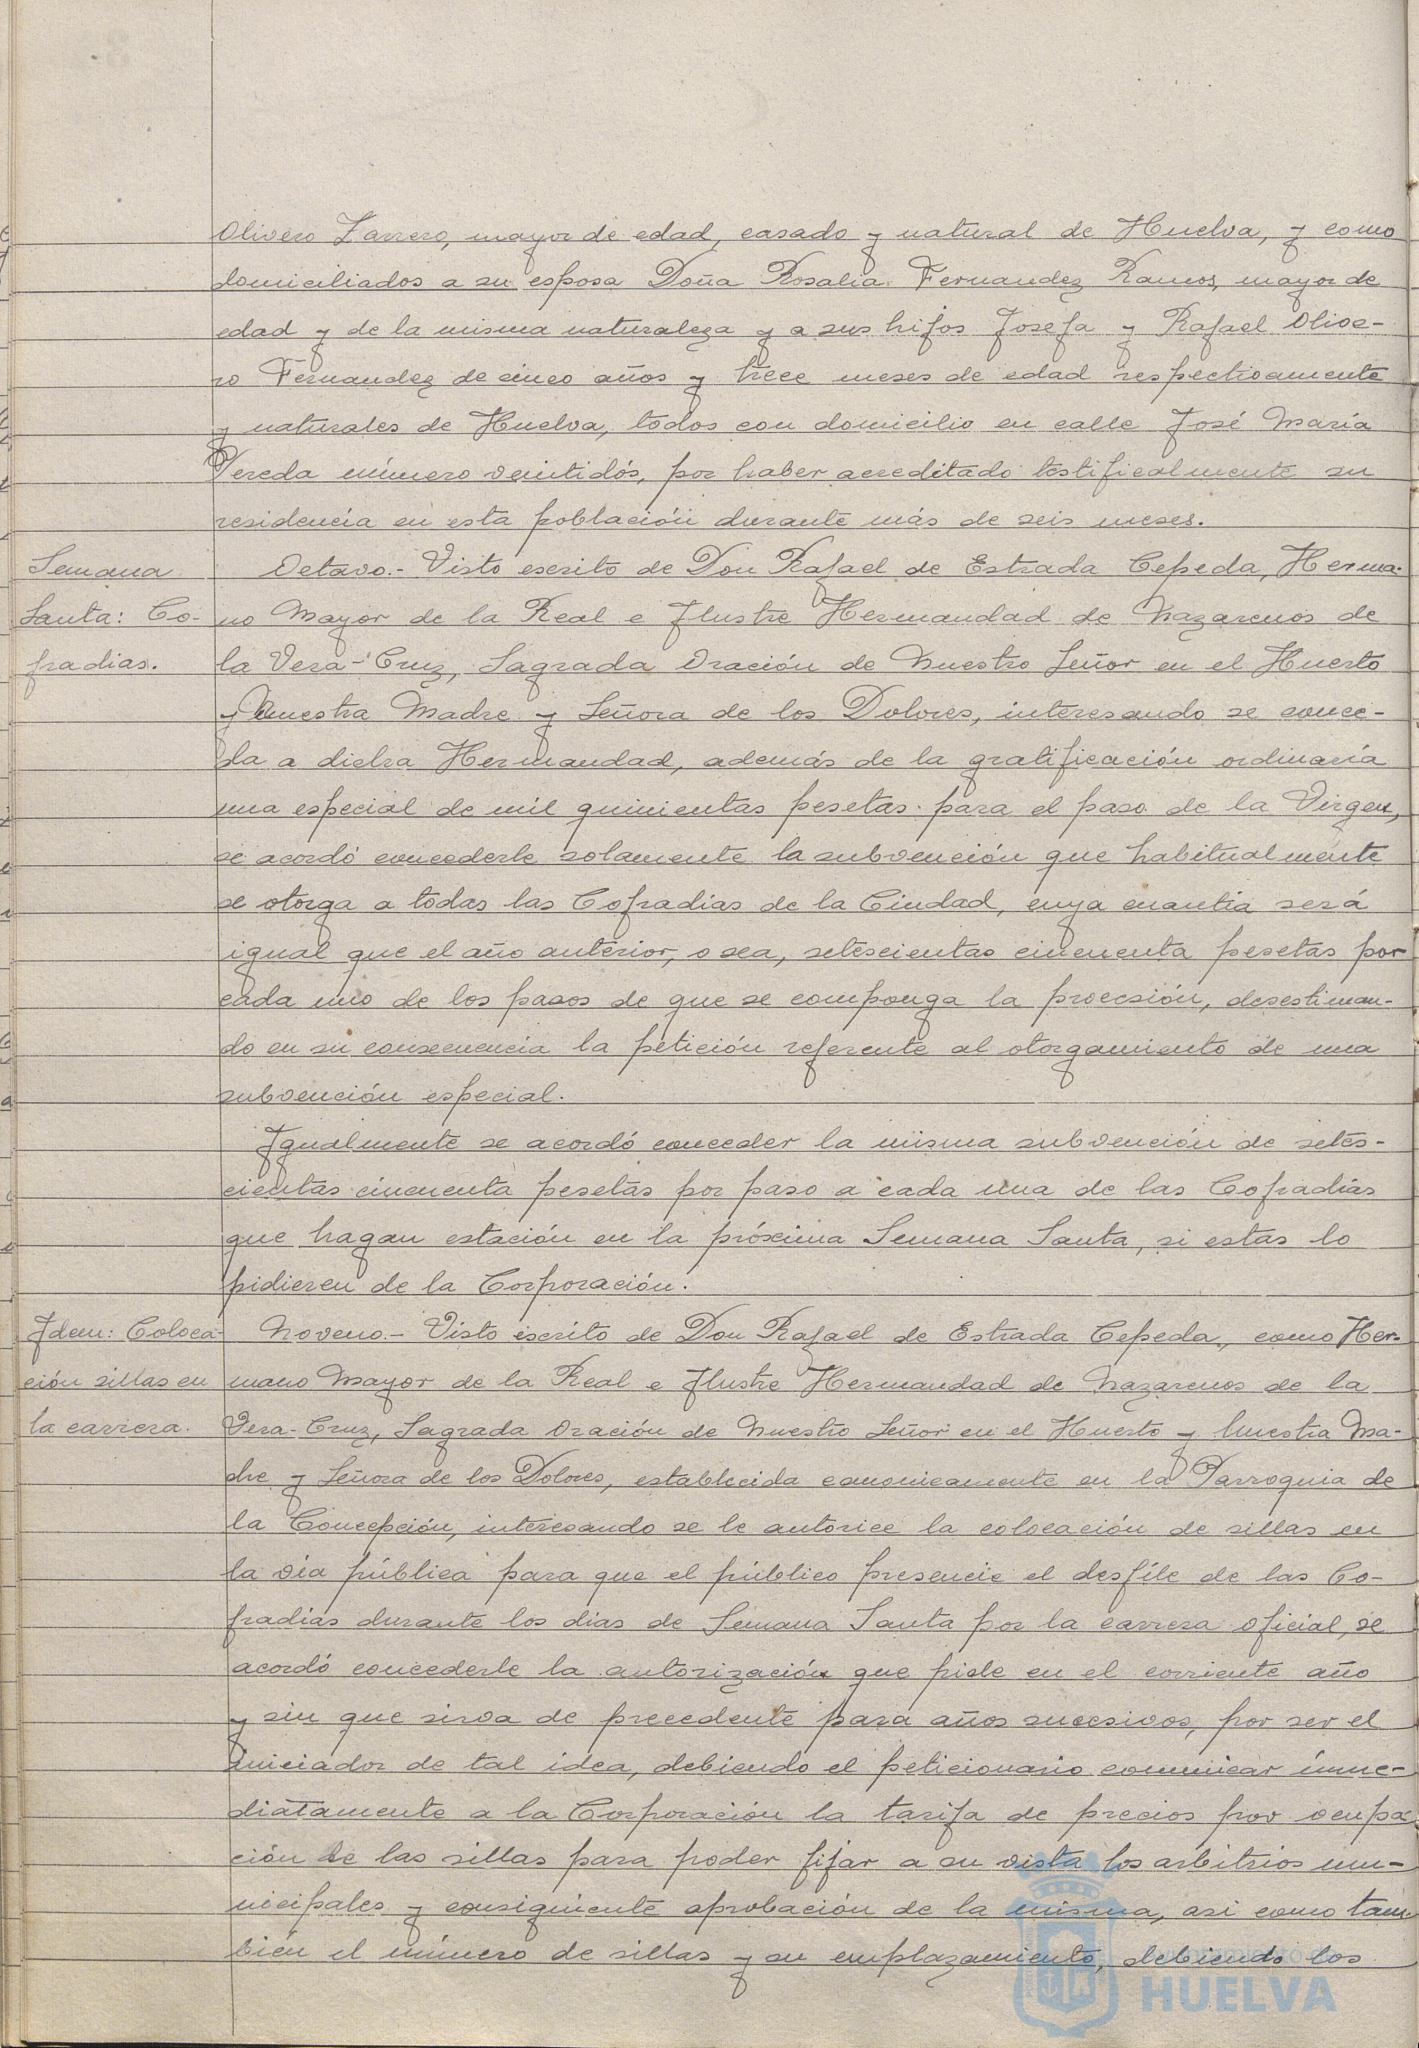 Olivero Zarrero, mayor de edad, casado y natural de Huelva, y como
domiciliados a su esposa Doña Rosalia Fernandez Ramos, mayor de
edad y de la misma naturaleza y a sus hijos Josefa y Rafael Olive-
ro Fernandez de cinco años y trece meses de edad respectivamente
y naturales de Huelva, todos con domicilio en calle José María
Pereda número veintidós, por haber acreditado testificalmente su
residencia en esta población durante más de seis meses.
Semana
Santa: Co-
fradias.
Octavo.- Visto escrito de Don Rafael de Estrada Cepeda, Herma-
no Mayor de la Real e Ilustre Hermandad de Nazarenos de
la Vera-Cruz, Sagrada Oración de Nuestro Señor en el Huerto
y Nuestra Madre y Señora de los Dolores, interesando se conce-
da a dicha Hermandad, además de la gratificación ordinaria
una especial de mil quinientas pesetas para el paso de la Virgen,
se acordó concederle solamente la subvención que habitualmente
se otorga a todas las Cofradías de la Ciudad, cuya cuantía será
igual que el año anterior, o sea, setescientas cincuenta pesetas por
cada uno de los pasos de que se componga la procesión, desestiman-
do en su consecuencia la petición referente al otorgamiento de una
subvención especial.
Igualmente se acordó conceder la misma subvención de setes-
cientas cincuenta pesetas por paso a cada una de las Cofradías
que hagan estación en la próxima Semana Santa, si estas lo
pidieren de la Corporación.
Idem: Coloca-
ción sillas en
la carrera.
Noveno.- Visto escrito de Don Rafael de Estrada Cepeda, como Her-
mano Mayor de la Real e Ilustre Hermandad de Nazarenos de la
Vera-Cruz, Sagrada Oración de Nuestro Señor en el Huerto y Nuestra Ma-
dre y Señora de los Dolores, establecida canonicamente en la Parroquia de
la Concepción, interesando se le autorice la colocación de sillas en
la vía pública para que el público presencie el desfile de las Co-
fradías durante los dias de Semana Santa por la carrera oficial, se
acordó concederle la autorización que pide en el corriente año
y sin que sirva de precedente para años sucesivos, por ser el
iniciador de tal idea, debiendo el peticionario comunicar inme-
diatamente a la Corporación la tarifa de precios por ocupa-
ción de las sillas para poder fijar a su vista los arbitrios mu-
nicipales y consiguiente aprobación de la misma, asi como tam-
bién el número de sillas y su emplazamiento, debiendo los
HUELVA